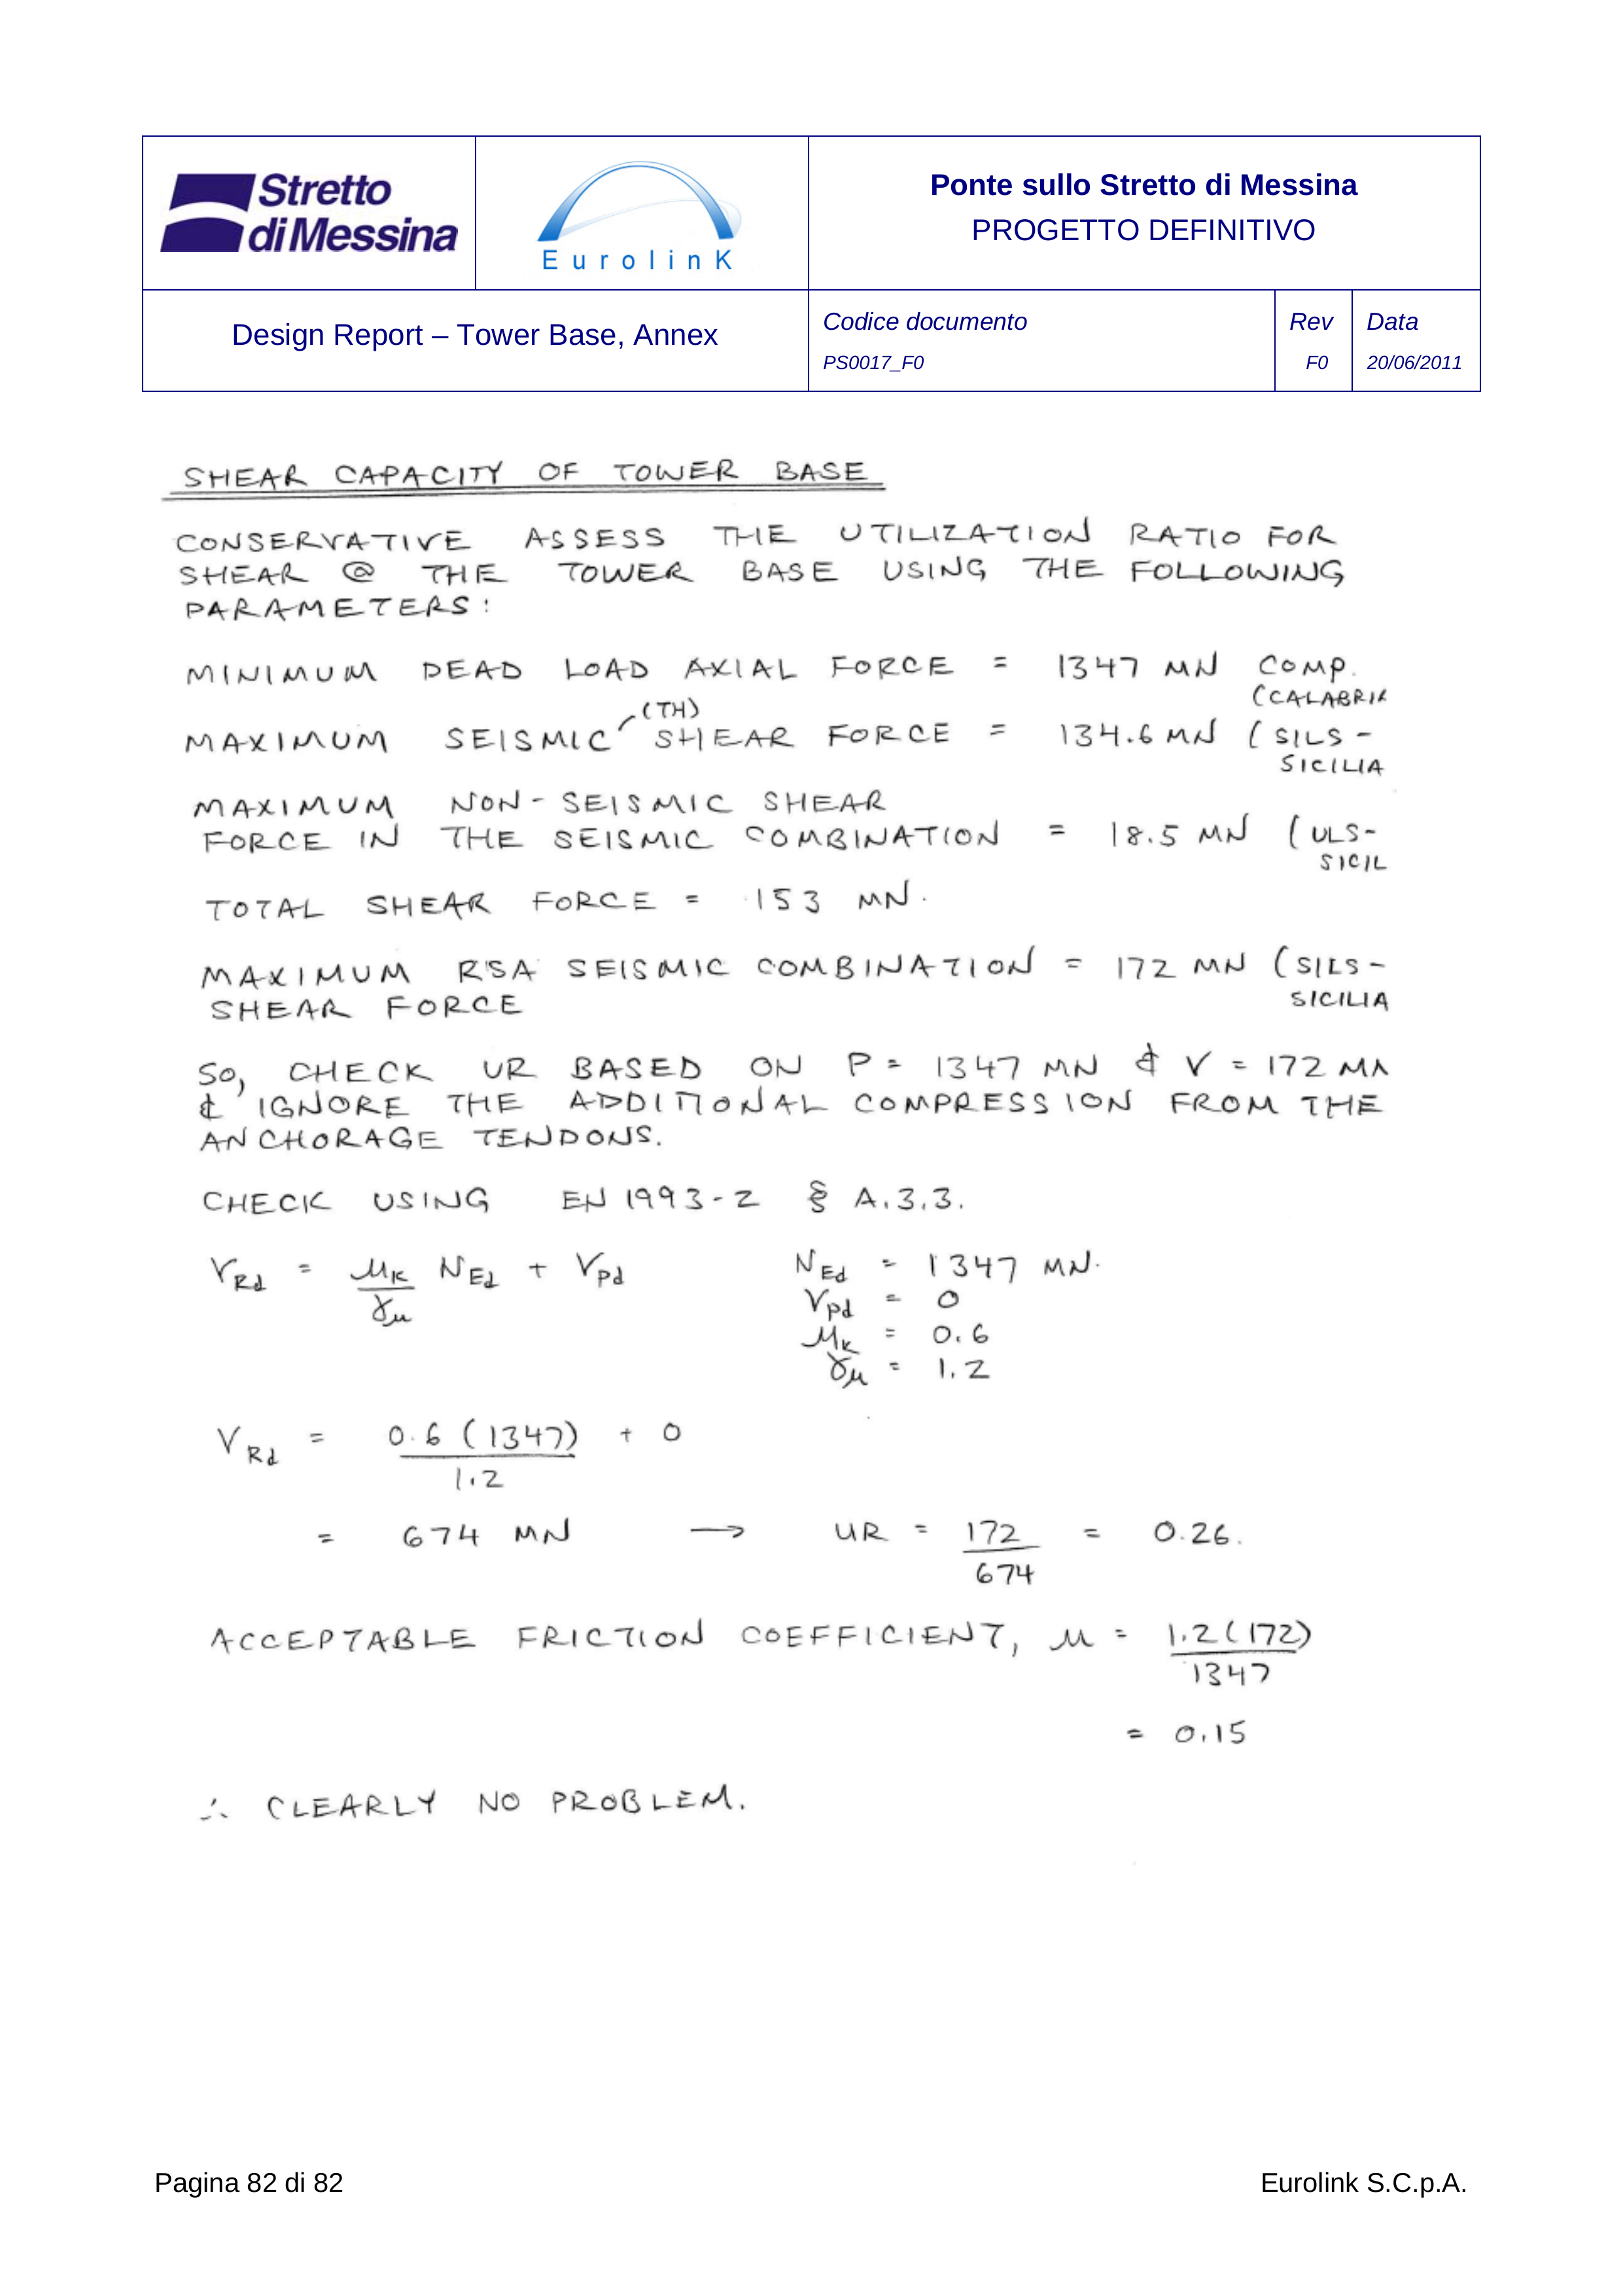 Stretto
di Messina
EurolinK
Ponte sullo Stretto di Messina
PROGETTO DEFINITIVO
Design Report – Tower Base, Annex
Codice documento
PS0017_F0
Rev
F0
Data
20/06/2011
SHEAR CAPACITY OF TOWER BASE
CONSERVATIVE ASSESS THE UTILIZATION RATIO FOR
SHEAR @ THE TOWER BASE USING THE FOLLOWING
PARAMETERS:
MINIMUM DEAD LOAD AXIAL FORCE = 1347 MN COMP.
(CALABRIA
(TH)
MAXIMUM SEISMIC SHEAR FORCE = 134.6 MN (SILS -
SICILIA
MAXIMUM NON-SEISMIC SHEAR
FORCE IN THE SEISMIC COMBINATION = 18.5 MN (ULS-
SICIL
TOTAL SHEAR FORCE = 153 MN.
MAXIMUM RSA SEISMIC COMBINATION = 172 MN (SILS -
SHEAR FORCE SICILIA
SO, CHECK UR BASED ON P = 1347 MN & V = 172 MN
& IGNORE THE ADDITIONAL COMPRESSION FROM THE
ANCHORAGE TENDONS.
CHECK USING EN 1993-2 § A.3.3.
V_Rd = μ_K/γ_μ N_Ed + V_pd
N_Ed = 1347 MN.
V_pd = 0
μ_K = 0.6
γ_μ = 1.2
V_Rd = 0.6 (1347)/1.2 + 0
= 674 MN → UR = 172/674 = 0.26.
ACCEPTABLE FRICTION COEFFICIENT, μ = 1.2(172)/1347
= 0.15
∴ CLEARLY NO PROBLEM.
Pagina 82 di 82
Eurolink S.C.p.A.